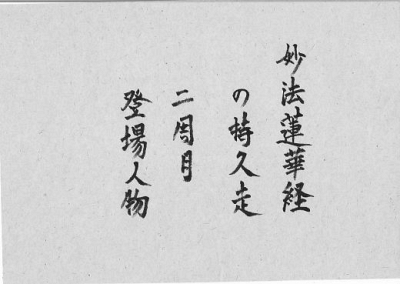 妙法蓮華経
の持久走
二周目
登場人物